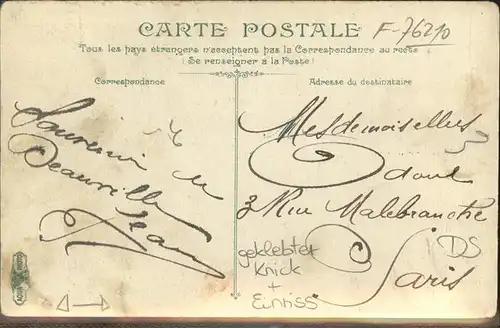 CARTE POSTALE
F-76210
Tous les pays étrangers n'acceptent pas la Correspondance au recto
(Se renseigner à la Poste)
Correspondance
Adresse du destinataire
Souvenir de
Deauville
Jean
Mesdemoiselles
3 Rue Malebranche
Paris
DS
geklebter
Knick
+
Einriss